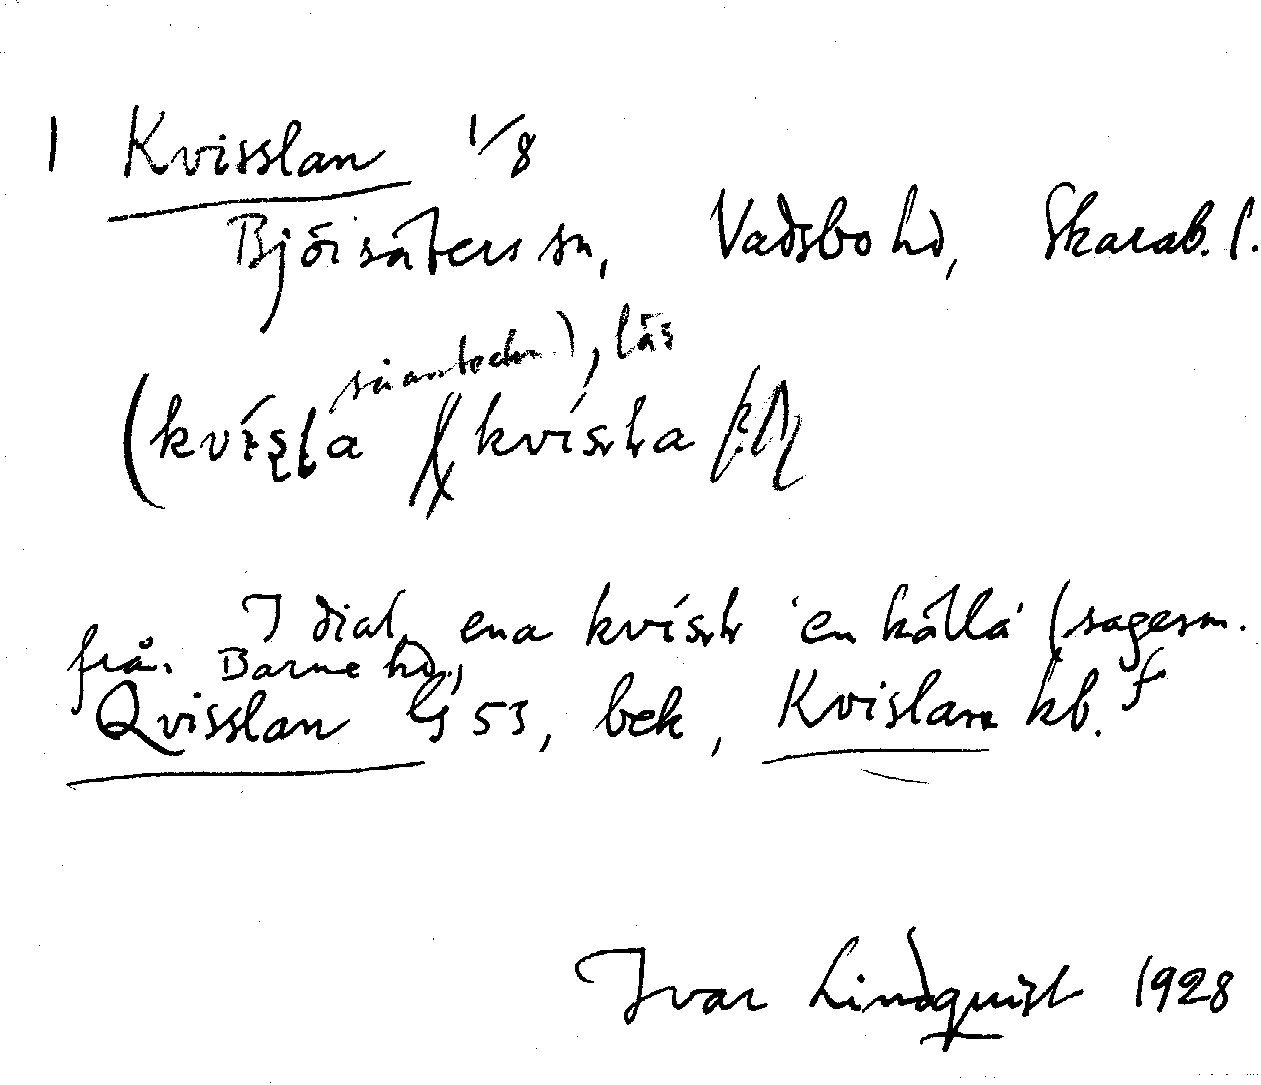 1 Kvisslan 1/8
Björsäters sn, Vadsbo hd, Skarab. l.
så anteckn.), läs
(kvísla kvísla
I dial. ena kvísl 'en källa' (sagesm.
från Barne hd,
Qvisslan GS 53, bek, Kvislarne kb. f
Ivar Lindquist 1928